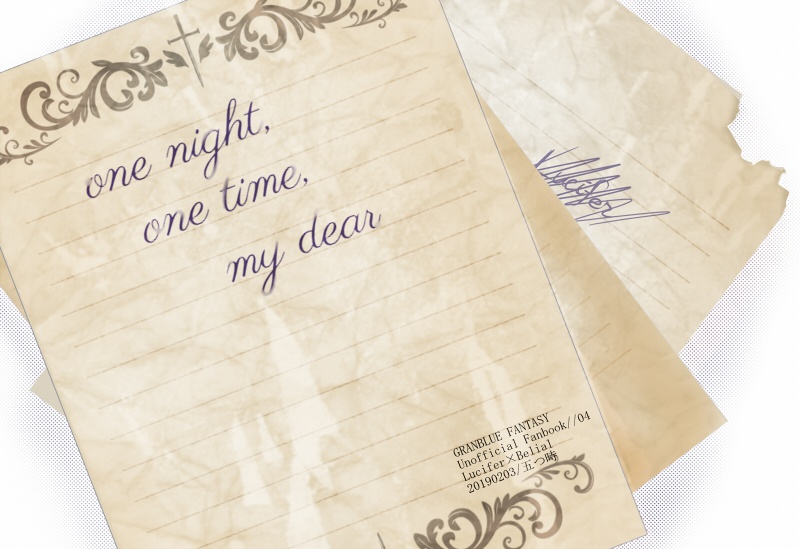 one night,
one time,
my dear
Lucifer
GRANBLUE FANTASY
Unofficial Fanbook//04
Lucifer×Belial
20190203/五つ時